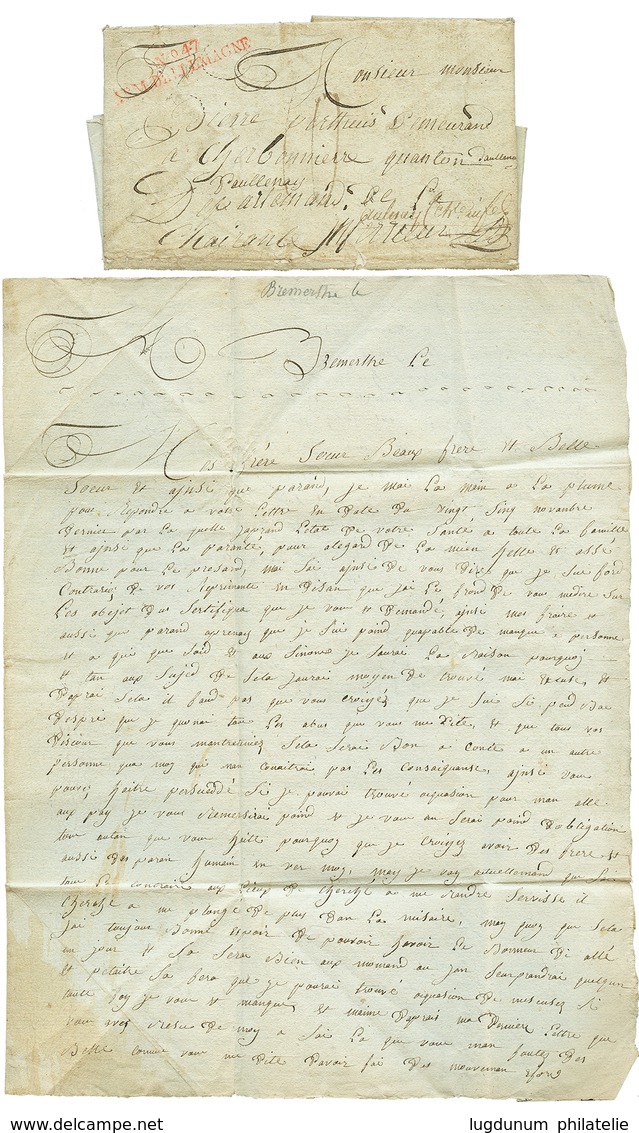 No. 47
ARM. D'ALLEMAGNE
Monsieur monsieur
Pierre
a Cherbonnierre quanton daullenay
Daullenay
Departemand de
Chairante
Bremershe le
Bremershe Le
Mes frére Soeur Beaux frere et Belle
Soeur et ajuse que parand, je mai La main a La plume
pour Repondre a votre Lettre En Date Du vingt Sinq novanbre
Dernier par La quelle japrand Letat De votre Santé a toute La famille
et ajuse que La paranté, pour alegard De La mien Helle et assé
Bonne pour Le presand, mai Sai ajuse De vous Dire que je Sui ford
Contrarié De vos Reprimante En Disan que jai Le frond De vous
Les abejet Dus Sertifiqua que je vous et Demandé, ajuse mes fraire et
aussi que parand aprenay que je Sui poind quapable De manque a personne
et a qui que Soid et aux Sinonse je Saurai La Raison pourquoj
et tan aux Sujed De Sela jaurai moyen De trouvé mai Excuse, et
Daprai Sela il faud pas que vous croiyés que je Sui Si poud Bai
Despri que je quonai tou Les abus que vous me Dite, et que tous vos
Discour que vous mantretenies Sela Serai Bon a Conte a un autre
personne que moy qui non conaitrai pas Les Consaiquanse, ajuse vous
pouvez Haitre persuadé Si je pouvai trouvé auquasion pour man allé
aux pay je vous Remersirai poind et je vous an Serai poind Dobligation
tout autan que vous Hette pourquoy que je croiyez avoir Des frere et
aussi Des parai Humain En ver moy, mais je voy actuellemand que Sai
tout Le contraire aux Lieux De Cherché a me Randre Servisse il
Cherche a me plongé De plus Dan La misaire, may quoy que Sela
jai toujour Bonne Espoir De pouvoir Havoir Le Bonneur De allé
un jour et Sa Sera Bien aux momand au jan Seurprandrai quelqun
et petaitre Sa Sera que je pourai trouvé auquasion De
toute foy je vous et manque et maime Daprais ma Derniere Lettre que
vous avez Resu De moy a Sai La que vous man foutez Des
Belle comme vous me Dite Davoir fai Des mouveman
lugdunum philatelie